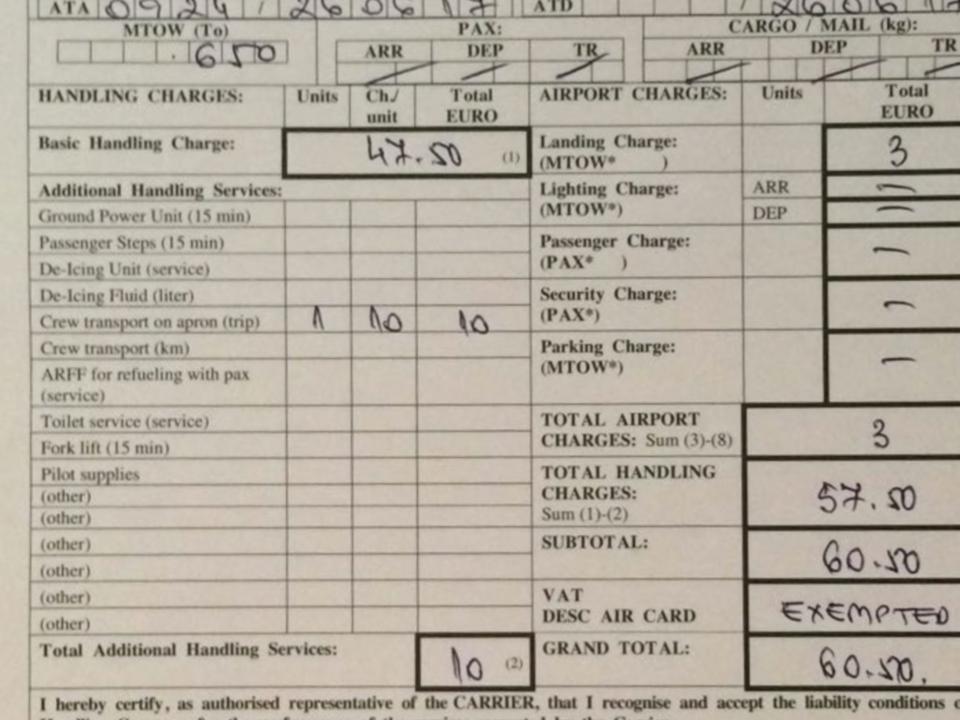 ATA 0924 / 260617 ATD / 260617
MTOW (To) PAX: CARGO / MAIL (kg):
.650 ARR DEP TR ARR DEP TR
HANDLING CHARGES: Units Ch./ unit Total EURO AIRPORT CHARGES: Units Total EURO
Basic Handling Charge: 47.50 (1) Landing Charge: (MTOW* ) 3
Additional Handling Services: Lighting Charge: (MTOW*) ARR —
Ground Power Unit (15 min) DEP —
Passenger Steps (15 min) Passenger Charge: (PAX* ) —
De-Icing Unit (service)
De-Icing Fluid (liter) Security Charge: (PAX*) —
Crew transport on apron (trip) 1 10 10
Crew transport (km) Parking Charge: (MTOW*) —
ARFF for refueling with pax
(service)
Toilet service (service) TOTAL AIRPORT
Fork lift (15 min) CHARGES: Sum (3)-(8) 3
Pilot supplies TOTAL HANDLING
(other) CHARGES: 57.50
(other) Sum (1)-(2)
(other) SUBTOTAL: 60.50
(other)
(other) VAT
(other) DESC AIR CARD EXEMPTED
Total Additional Handling Services: 10 (2) GRAND TOTAL: 60.50.
I hereby certify, as authorised representative of the CARRIER, that I recognise and accept the liability conditions